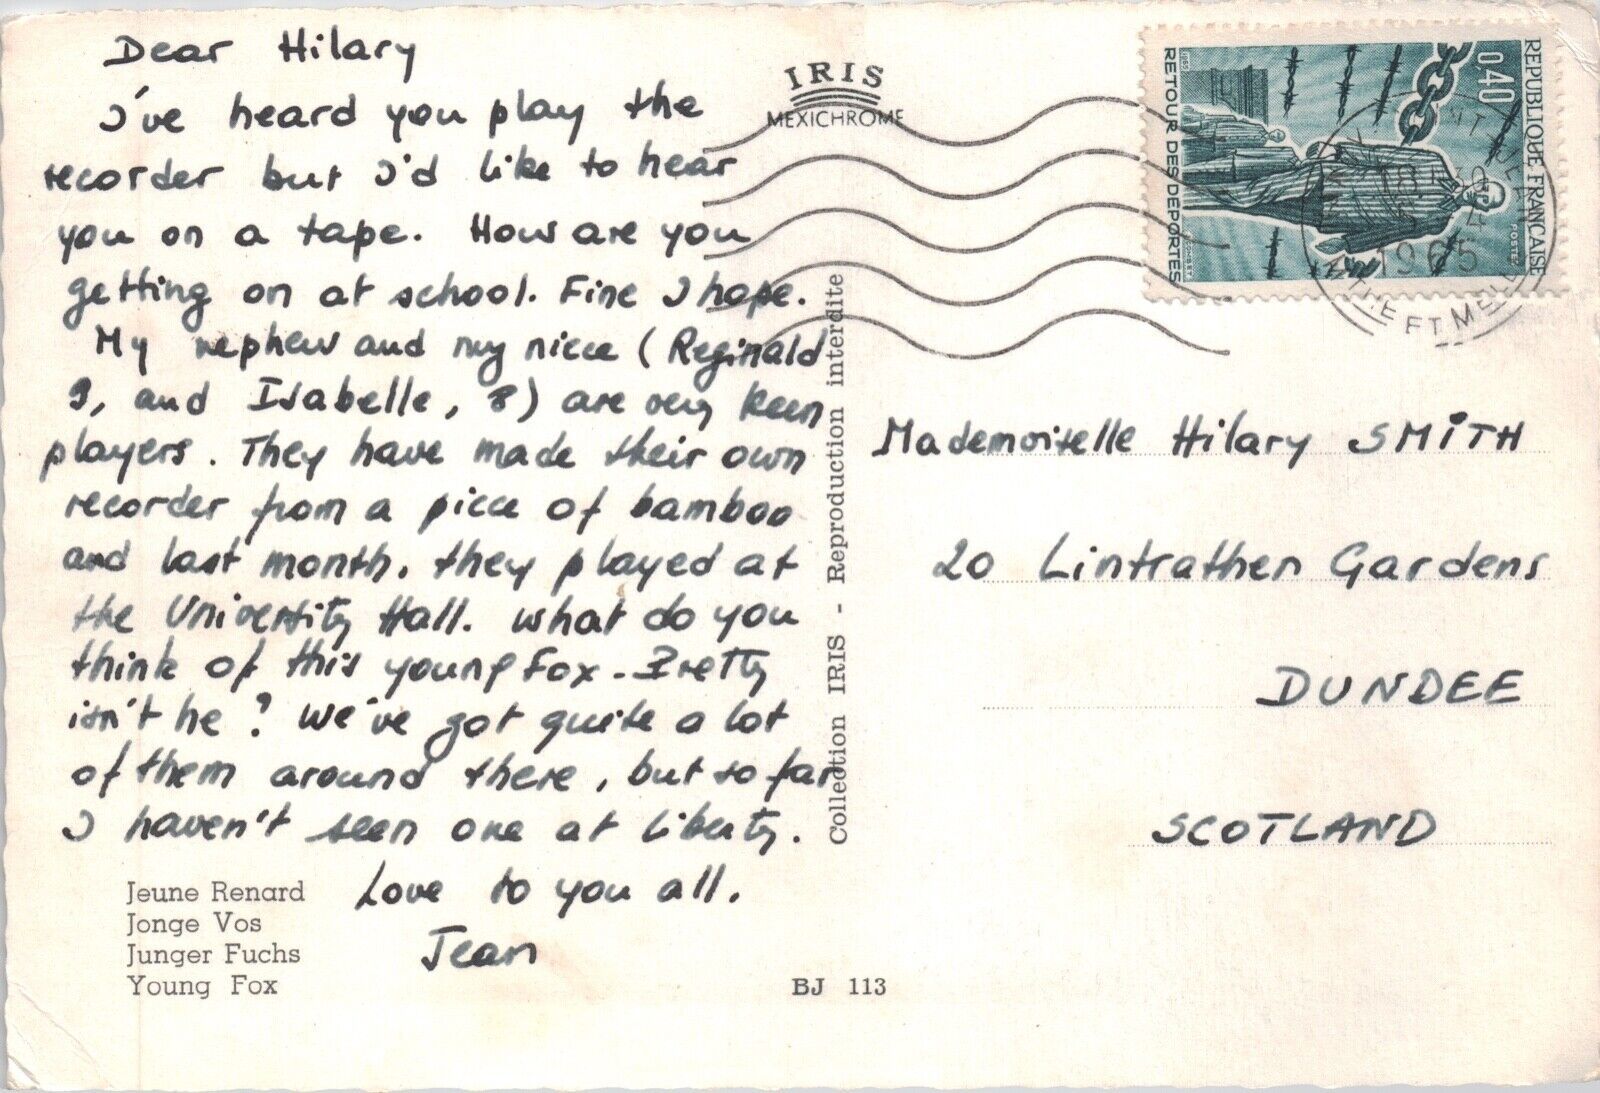 Dear Hilary
I've heard you play the
recorder but I'd like to hear
you on a tape. How are you
getting on at school. Fine I hope.
My nephew and my niece (Reginald
9, and Isabelle, 8) are very keen
players. They have made their own
recorder from a piece of bamboo
and last month, they played at
the University Hall. What do you
think of this young Fox. Pretty
isn't he? We've got quite a lot
of them around there, but so far
I haven't seen one at liberty.
Love to you all.
Jean
Jeune Renard
Jonge Vos
Junger Fuchs
Young Fox
IRIS
MEXICHROME
Collection IRIS - Reproduction interdite
BJ 113
REPUBLIQUE FRANCAISE
0,40
POSTES
RETOUR DES DEPORTES
1965
1965
Mademoiselle Hilary SMITH
20 Lintrathen Gardens
DUNDEE
SCOTLAND